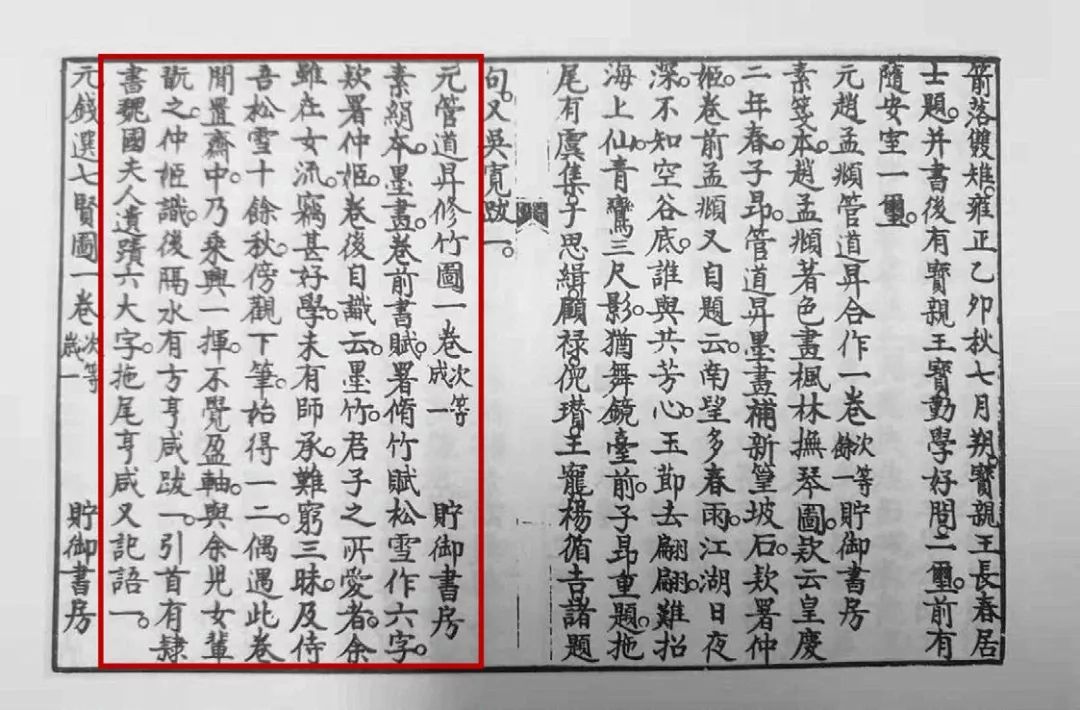 箭落雙雉。雍正乙卯秋七月朔。寶親王長春居
士題。并書後有寶親王寶勤學好問。二璽。前有
隨安室一璽。
元趙孟頫管道昇合作一卷 次等 餘一 貯御書房
素箋本。趙孟頫著色畫楓林撫琴圖。款云皇慶
二年春。子昂。管道昇墨畫補新篁坡石。款署仲
姬。卷前孟頫又自題云。南望多春雨。江湖日夜
深。不知空谷底。誰與共芳心。玉節去翩翩。難招
海上仙。青鸞三尺影。猶舞鏡臺前。子昂重題。拖
尾有虞集。子思緝。顧祿。倪瓚。王寵。楊循吉諸題
句。又吳寬跋一。
元管道昇修竹圖一卷 次等 成一 貯御書房
素絹本。墨畫。卷前書賦。署脩竹賦松雪作六字。
款署仲姬。卷後自識云。墨竹。君子之所愛者。余
雖在女流。竊甚好學。未有師承。難窮三昧。及侍
吾松雪十餘秋。傍觀下筆。始得一二。偶遇此卷
閒置齋中。乃乘興一揮。不覺盈軸。與余兒女輩
翫之。仲姬識。後隔水有方亨咸跋一。引首有隸
書魏國夫人遺蹟六大字。拖尾亨咸又記語一。
元錢選七賢圖一卷 次等 歲一 貯御書房